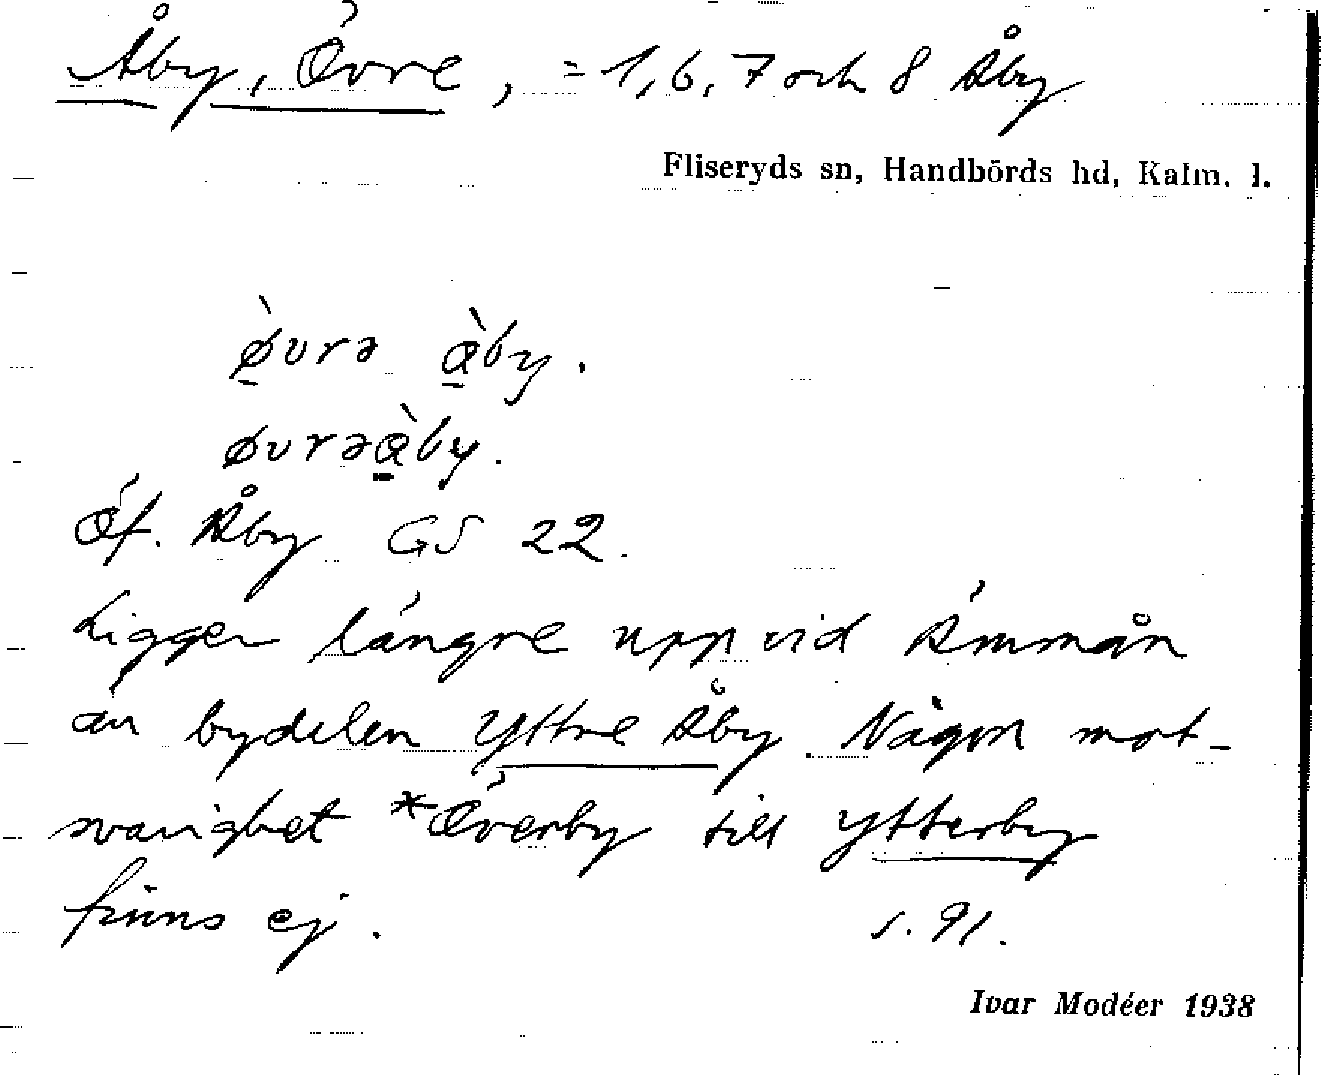 Åby, Övre, = 1, 6, 7 och 8 Åby
Fliseryds sn, Handbörds hd, Kalm. l.
ø̱̀vrə à̱by.
øvrəà̱by.
Öf. Åby GS 22.
Ligger längre upp vid Ämmån
än bydelen Yttre Åby. Någon mot-
svarighet *Överby till Ytterby
finns ej. s. 91.
Ivar Modéer 1938